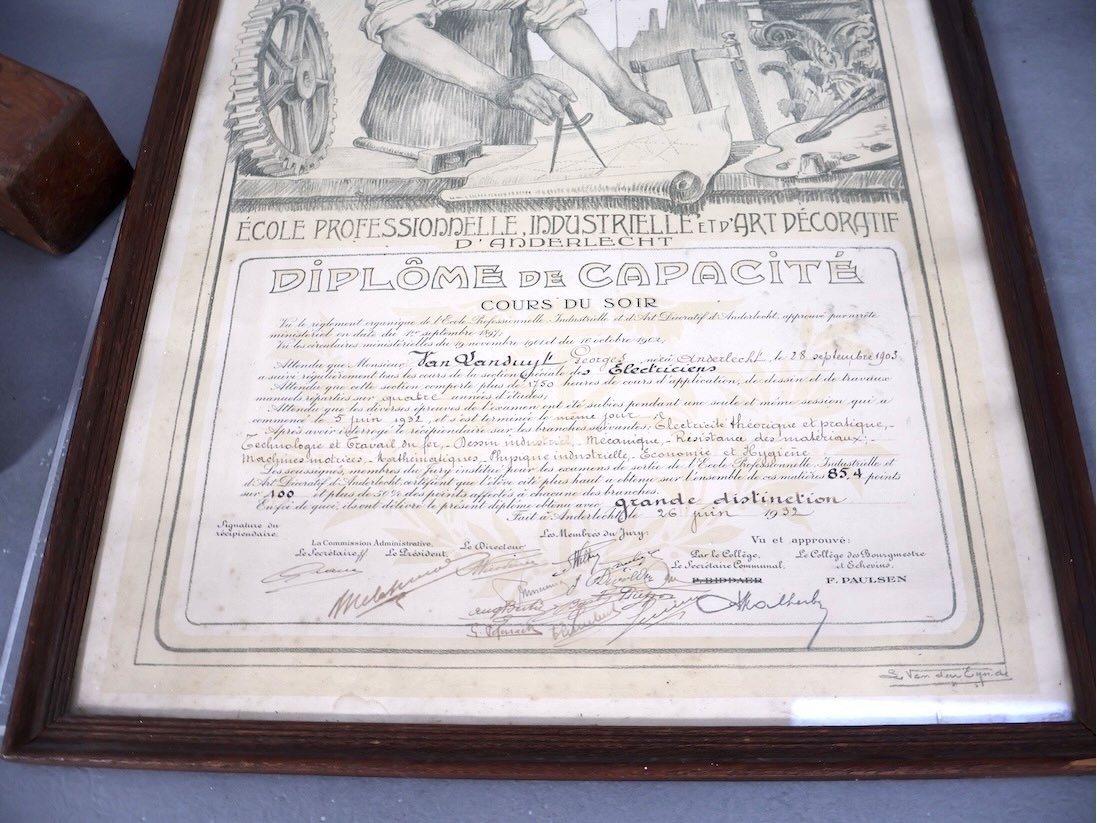 ÉCOLE PROFESSIONNELLE, INDUSTRIELLE ET D'ART DÉCORATIF
D'ANDERLECHT
DIPLÔME DE CAPACITÉ
COURS DU SOIR
Vu le règlement organique de l'École Professionnelle Industrielle et d'Art Décoratif d'Anderlecht, approuvé par arrêté
ministériel en date du 1er septembre 1897;
Vu les circulaires ministérielles du 19 novembre 1901 et du 16 octobre 1902;
Attendu que Monsieur Van Landuyt Georges, né à Anderlecht, le 28 septembre 1903
a suivi régulièrement tous les cours de la section spéciale des Electriciens
Attendu que cette section comporte plus de 1750 heures de cours d'application, de dessin et de travaux
manuels réparties sur quatre années d'études;
Attendu que les diverses épreuves de l'examen ont été subies pendant une seule et même session qui a
commencé le 5 juin 1932, et s'est terminée le même jour
Après avoir interrogé le récipiendaire sur les branches suivantes: Electricité théorique et pratique,-
Technologie et Travail du fer,- Dessin industriel,- Mécanique,- Résistance des matériaux;
Machines motrices,- Mathématiques,- Physique industrielle,- Economie et Hygiène
Les soussignés, membres du Jury institué pour les examens de sortie de l'École Professionnelle Industrielle et
d'Art Décoratif d'Anderlecht certifient que l'élève cité plus haut a obtenu sur l'ensemble de ces matières 85,4 points
sur 100 et plus de 50% des points affectés à chacune des branches.
En foi de quoi, ils ont délivré le présent diplôme obtenu avec grande distinction
Fait à Anderlecht, le 26 juin 1932
Signature du
récipiendaire:
Les Membres du Jury:
Vu et approuvé:
La Commission Administrative,
Le Secrétaire Le Président, Le Directeur
Par le Collège, Le Collège des Bourgmestre
Le Secrétaire Communal, et Echevins,
P. BIDDAER F. PAULSEN
Van den Eynde